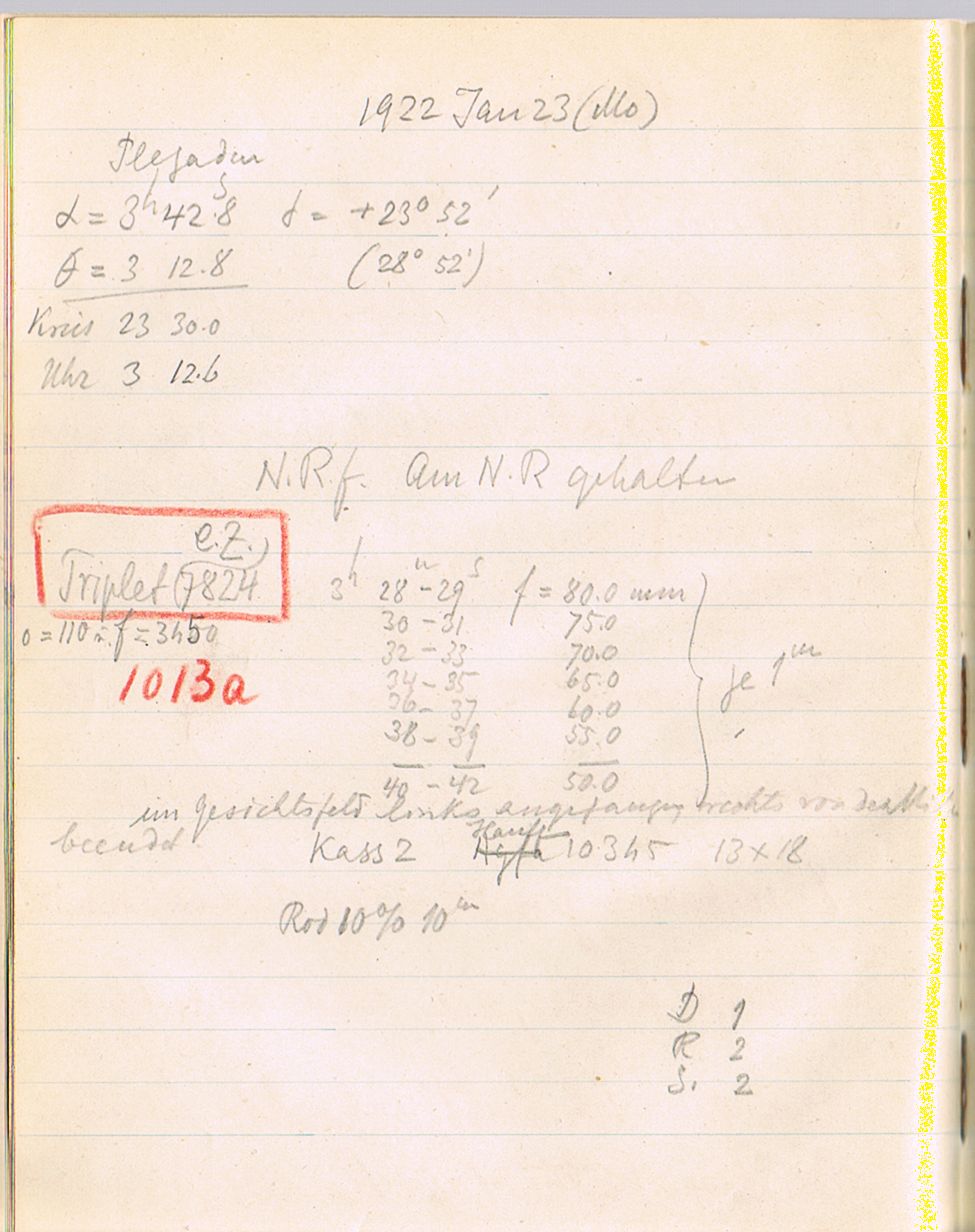 1922 Jan 23 (Mo)
Plejaden
α = 3h 42.8 δ = +23° 52'
θ = 3 12.8 (28° 52')
Kreis 23 30.0
Uhr 3 12.6
N.R.f. Am N.R gehalten
e.Z.
Triplet (7824
3h 28m - 29s f = 80.0 mm
30 - 31 75.0
o = 110 f = 3450
32 - 33 70.0
34 - 35 65.0 je 1m
1013a
36 - 37 60.0
38 - 39 55.0
40 - 42 50.0
im Gesichtsfeld links angefangen, rechts von
beendet.
Kass 2 Hauff 10345 13 x 18
Rod 10% 10m
D 1
R 2
S. 2